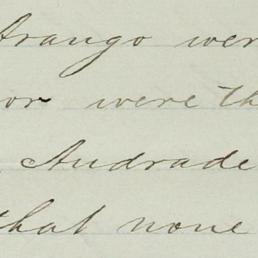 Arango wer
or were th
Andrade
that none